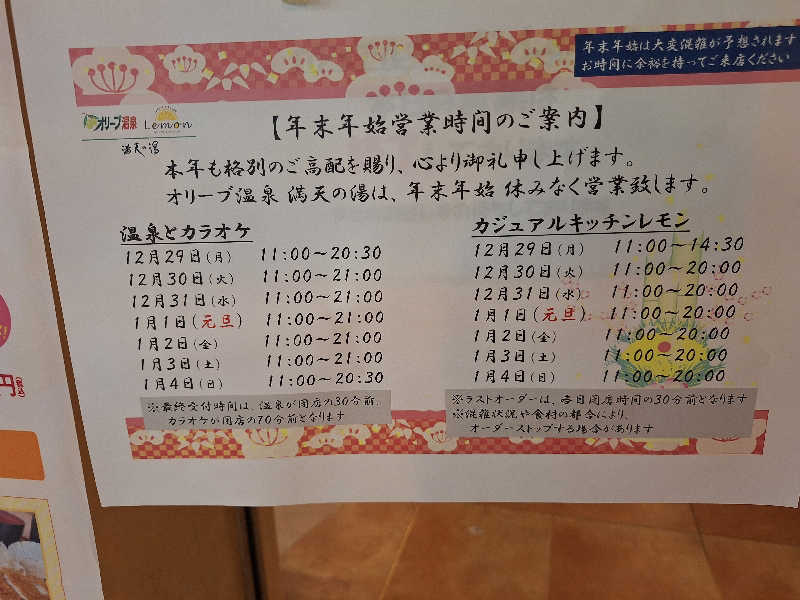 年末年始は大変混雑が予想されます
お時間に余裕を持ってご来店ください
オリーブ温泉 Lemon
満天の湯
【年末年始営業時間のご案内】
本年も格別のご高配を賜り、心より御礼申し上げます。
オリーブ温泉 満天の湯は、年末年始 休みなく営業致します。
温泉とカラオケ
12月29日(月) 11:00～20:30
12月30日(火) 11:00～21:00
12月31日(水) 11:00～21:00
1月1日(元旦) 11:00～21:00
1月2日(金) 11:00～21:00
1月3日(土) 11:00～21:00
1月4日(日) 11:00～20:30
※最終受付時間は、温泉が閉店の30分前、
カラオケが閉店の70分前となります
カジュアルキッチンレモン
12月29日(月) 11:00～14:30
12月30日(火) 11:00～20:00
12月31日(水) 11:00～20:00
1月1日(元旦) 11:00～20:00
1月2日(金) 11:00～20:00
1月3日(土) 11:00～20:00
1月4日(日) 11:00～20:00
※ラストオーダーは、各日閉店時間の30分前となります
※混雑状況や食材の都合により、
オーダーストップする場合があります
円